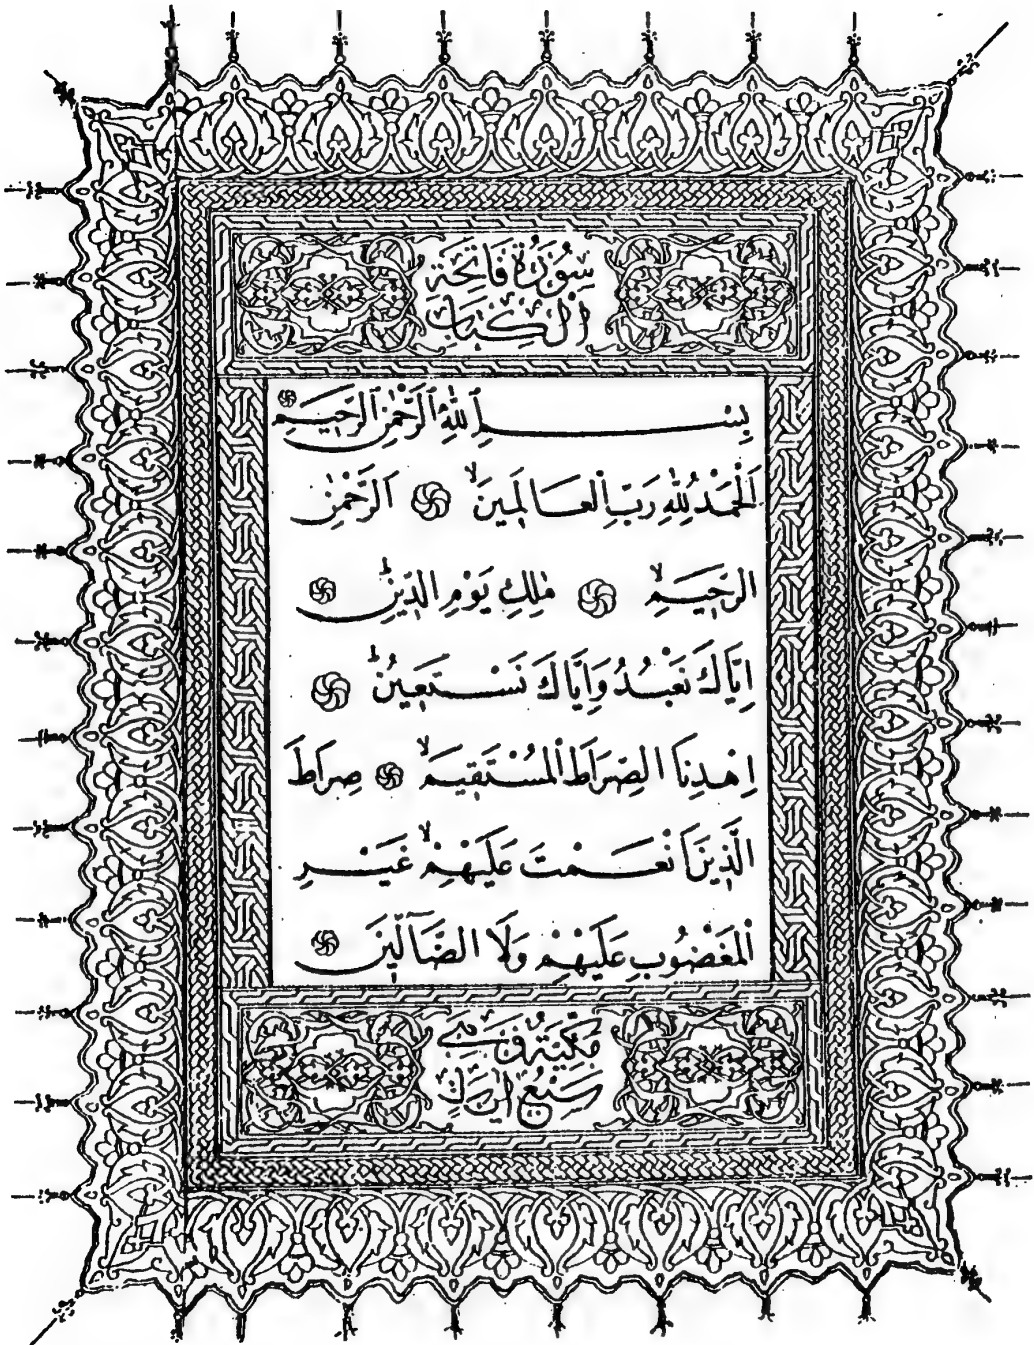 سُورَةُ فَاتِحَةِ
الْكِتَابِ
بِسْمِ اللهِ الرَّحْمٰنِ الرَّحِيمِ
اَلْحَمْدُ لِلّٰهِ رَبِّ الْعَالَمِينَۙ اَلرَّحْمٰنِ
الرَّحِيمِۙ مٰلِكِ يَوْمِ الدِّينِۜ
اِيَّاكَ نَعْبُدُ وَاِيَّاكَ نَسْتَعِينُۜ
اِهْدِنَا الصِّرَاطَ الْمُسْتَقِيمَۙ صِرَاطَ
الَّذِينَ اَنْعَمْتَ عَلَيْهِمْۙ غَيْرِ
الْمَغْضُوبِ عَلَيْهِمْ وَلَا الضَّٓالِّينَ
مَكِّيَّةٌ وَهِيَ
سَبْعُ اٰيَاتٍ